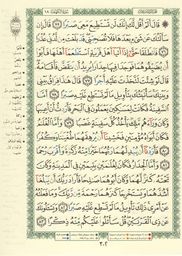 ۞ قَالَ أَلَمْ أَقُل لَّكَ إِنَّكَ لَن تَسْتَطِيعَ مَعِيَ صَبْرًا ٧٥ قَالَ إِن
سَأَلْتُكَ عَن شَيْءٍ بَعْدَهَا فَلَا تُصَٰحِبْنِي قَدْ بَلَغْتَ مِن لَّدُنِّي عُذْرًا
٧٦ فَٱنطَلَقَا حَتَّىٰ إِذَا أَتَيَا أَهْلَ قَرْيَةٍ ٱسْتَطْعَمَا أَهْلَهَا فَأَبَوْا
أَن يُضَيِّفُوهُمَا فَوَجَدَا فِيهَا جِدَارًا يُرِيدُ أَن يَنقَضَّ فَأَقَامَهُ
قَالَ لَوْ شِئْتَ لَتَّخَذْتَ عَلَيْهِ أَجْرًا ٧٧ قَالَ هَٰذَا فِرَاقُ بَيْنِي
وَبَيْنِكَ سَأُنَبِّئُكَ بِتَأْوِيلِ مَا لَمْ تَسْتَطِع عَّلَيْهِ صَبْرًا ٧٨ أَمَّا
ٱلسَّفِينَةُ فَكَانَتْ لِمَسَٰكِينَ يَعْمَلُونَ فِي ٱلْبَحْرِ فَأَرَدتُّ أَنْ أَعِيبَهَا
وَكَانَ وَرَاءَهُم مَّلِكٌ يَأْخُذُ كُلَّ سَفِينَةٍ غَصْبًا ٧٩ وَأَمَّا ٱلْغُلَٰمُ
فَكَانَ أَبَوَاهُ مُؤْمِنَيْنِ فَخَشِينَا أَن يُرْهِقَهُمَا طُغْيَٰنًا وَكُفْرًا
٨٠ فَأَرَدْنَا أَن يُبْدِلَهُمَا رَبُّهُمَا خَيْرًا مِّنْهُ زَكَوٰةً وَأَقْرَبَ رُحْمًا
٨١ وَأَمَّا ٱلْجِدَارُ فَكَانَ لِغُلَٰمَيْنِ يَتِيمَيْنِ فِي ٱلْمَدِينَةِ وَكَانَ
تَحْتَهُ كَنزٌ لَّهُمَا وَكَانَ أَبُوهُمَا صَٰلِحًا فَأَرَادَ رَبُّكَ أَن يَبْلُغَا
أَشُدَّهُمَا وَيَسْتَخْرِجَا كَنزَهُمَا رَحْمَةً مِّن رَّبِّكَ وَمَا فَعَلْتُهُ
عَنْ أَمْرِي ذَٰلِكَ تَأْوِيلُ مَا لَمْ تَسْطِع عَّلَيْهِ صَبْرًا ٨٢ وَيَسْـَٔلُونَكَ
عَن ذِي ٱلْقَرْنَيْنِ قُلْ سَأَتْلُوا عَلَيْكُم مِّنْهُ ذِكْرًا ٨٣
٣٠٢